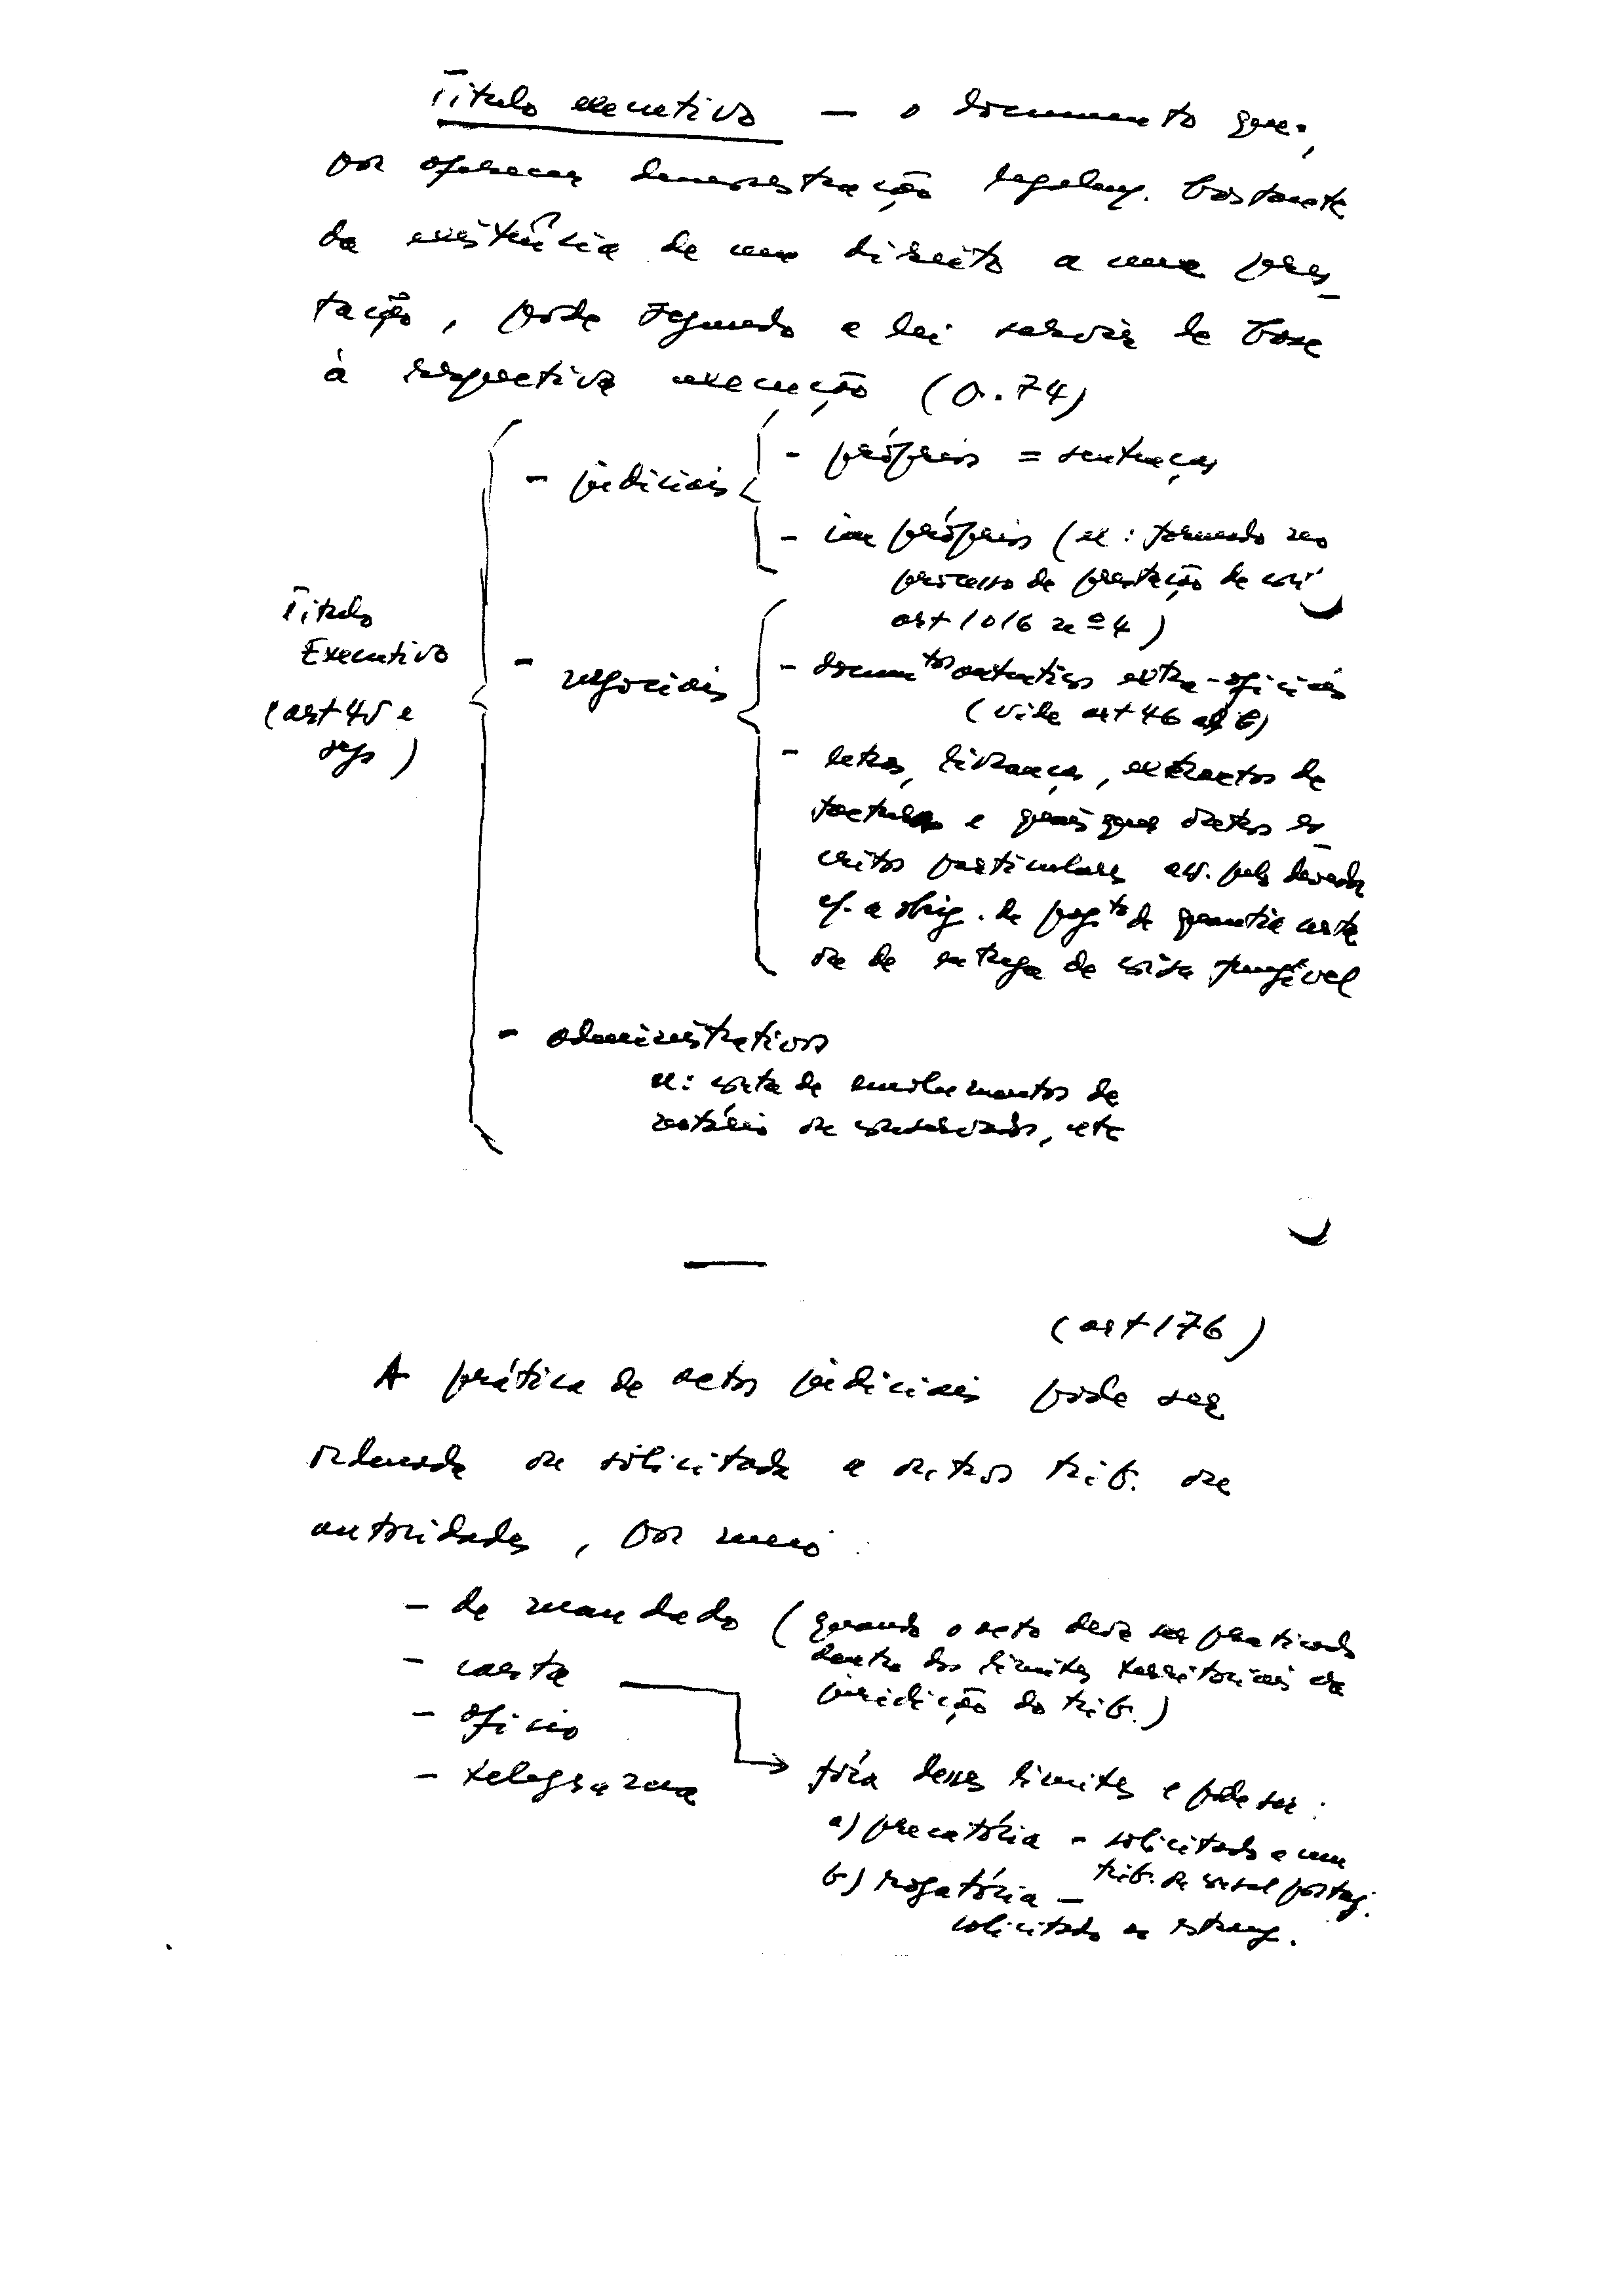 Título executivo — o documento que,
por oferecer demonstração legalm. bastante
da existência de um direito a uma pres_
tação, pode segundo a lei servir de base
à respectiva execução (p. 74)
Título
Executivo
(art 45 e
segs)
- judiciais
- próprios = sentenças
- impróprios (ex: formado no
processo de prestação de
art 1016 nº 4)
- negociais
- docum.tos autenticos extra-oficiais
(vide art 46 al b)
- letras, livranças, extractos de
factura e quaisquer outros es_
critos particulares ass. pelo devedor
q. a obrig. de pag.to de quantia certa
ou de entrega de coisa fungível
- administrativos
ex: conta de emolumentos de
notário ou conservador, etc
(art 176)
A prática de actos judiciais pode ser
ordenada ou solicitada a outros trib. ou
autoridades, por meio:
- de mandado (quando o acto deva ser praticado
dentro dos limites territoriais da
juridição do trib.)
- carta
- oficio
- telegrama
fóra desses limites e pode ser:
a) precatória - solicitado a um
trib. ou consul portug.
b) rogatória —
solicitado ao estrang.